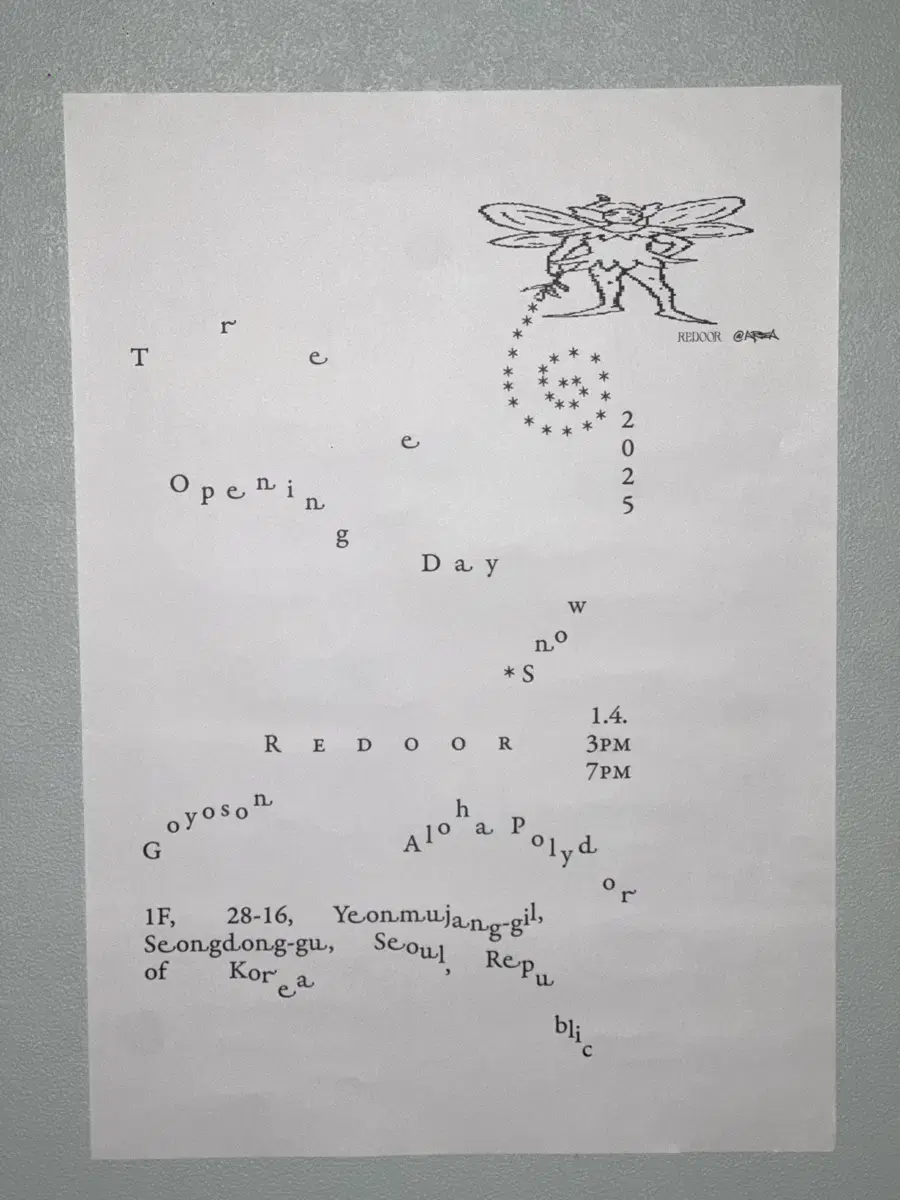 REDOOR @AREA
Tree
2025
Opening
Day
*Snow
REDOOR
1.4.
3PM
7PM
Goyoson
Aloha Polydor
1F, 28-16, Yeonmujang-gil,
Seongdong-gu, Seoul, Republic
of Korea